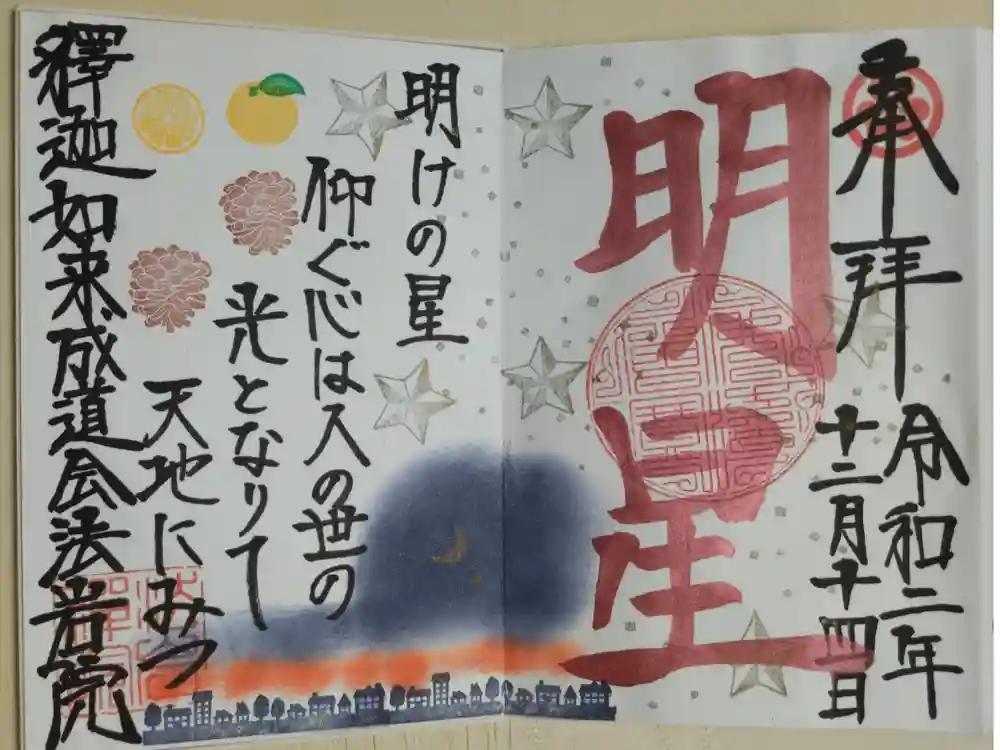 奉拝
令和二年
十二月十四日
明星
明けの星
仰ぐ心は人の世の
光となりて
天地にみつ
釋迦如来成道会法岩院